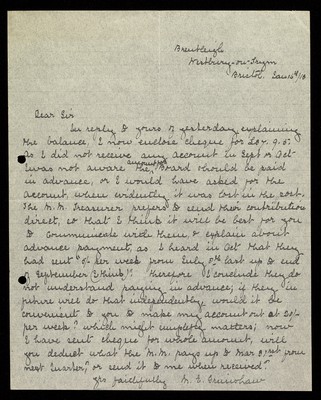 Brentleigh
Westbury-on-Trym
Bristol. Jan 16th/19
Dear Sir
In reply to yours of yesterday explaining
the balance, I now enclose cheque for £07. 9. 5.
As I did not receive any account in Sept or Oct
& was not aware the amount of Board should be paid
in advance, or I would have asked for the
account when evidently it was lost in the post.
The M.M. Treasurer prefers to send their contribution
direct, so that I think it will be best for you
to communicate with them, & explain about
advance payment, as I heard in Oct that they
had sent per week from July last up to end
of September (I think)! Therefore I conclude they do
not understand paying in advance; if they in
future will do that independently would it be
convenient to you to make my account out at 20/-
per week? which might simplify matters; now
I have sent cheque for whole amount, will
you deduct what the M.M. pays up to Mar 31st from
next quarter, or send it to me when received?
Yrs faithfully M. E. Grimshaw